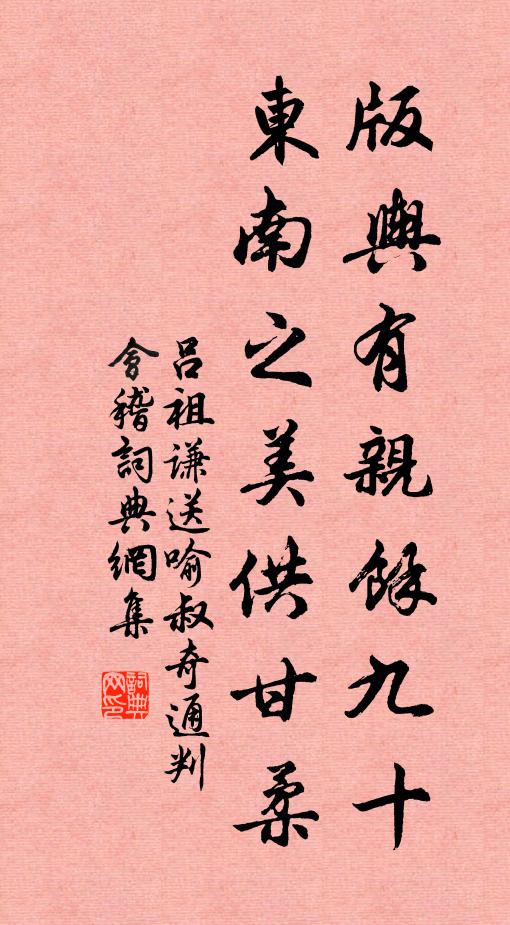 版輿有親餘九十
東南之美供甘柔
呂祖謙送喻叔奇通判
會稽詞典網集
詞典網印